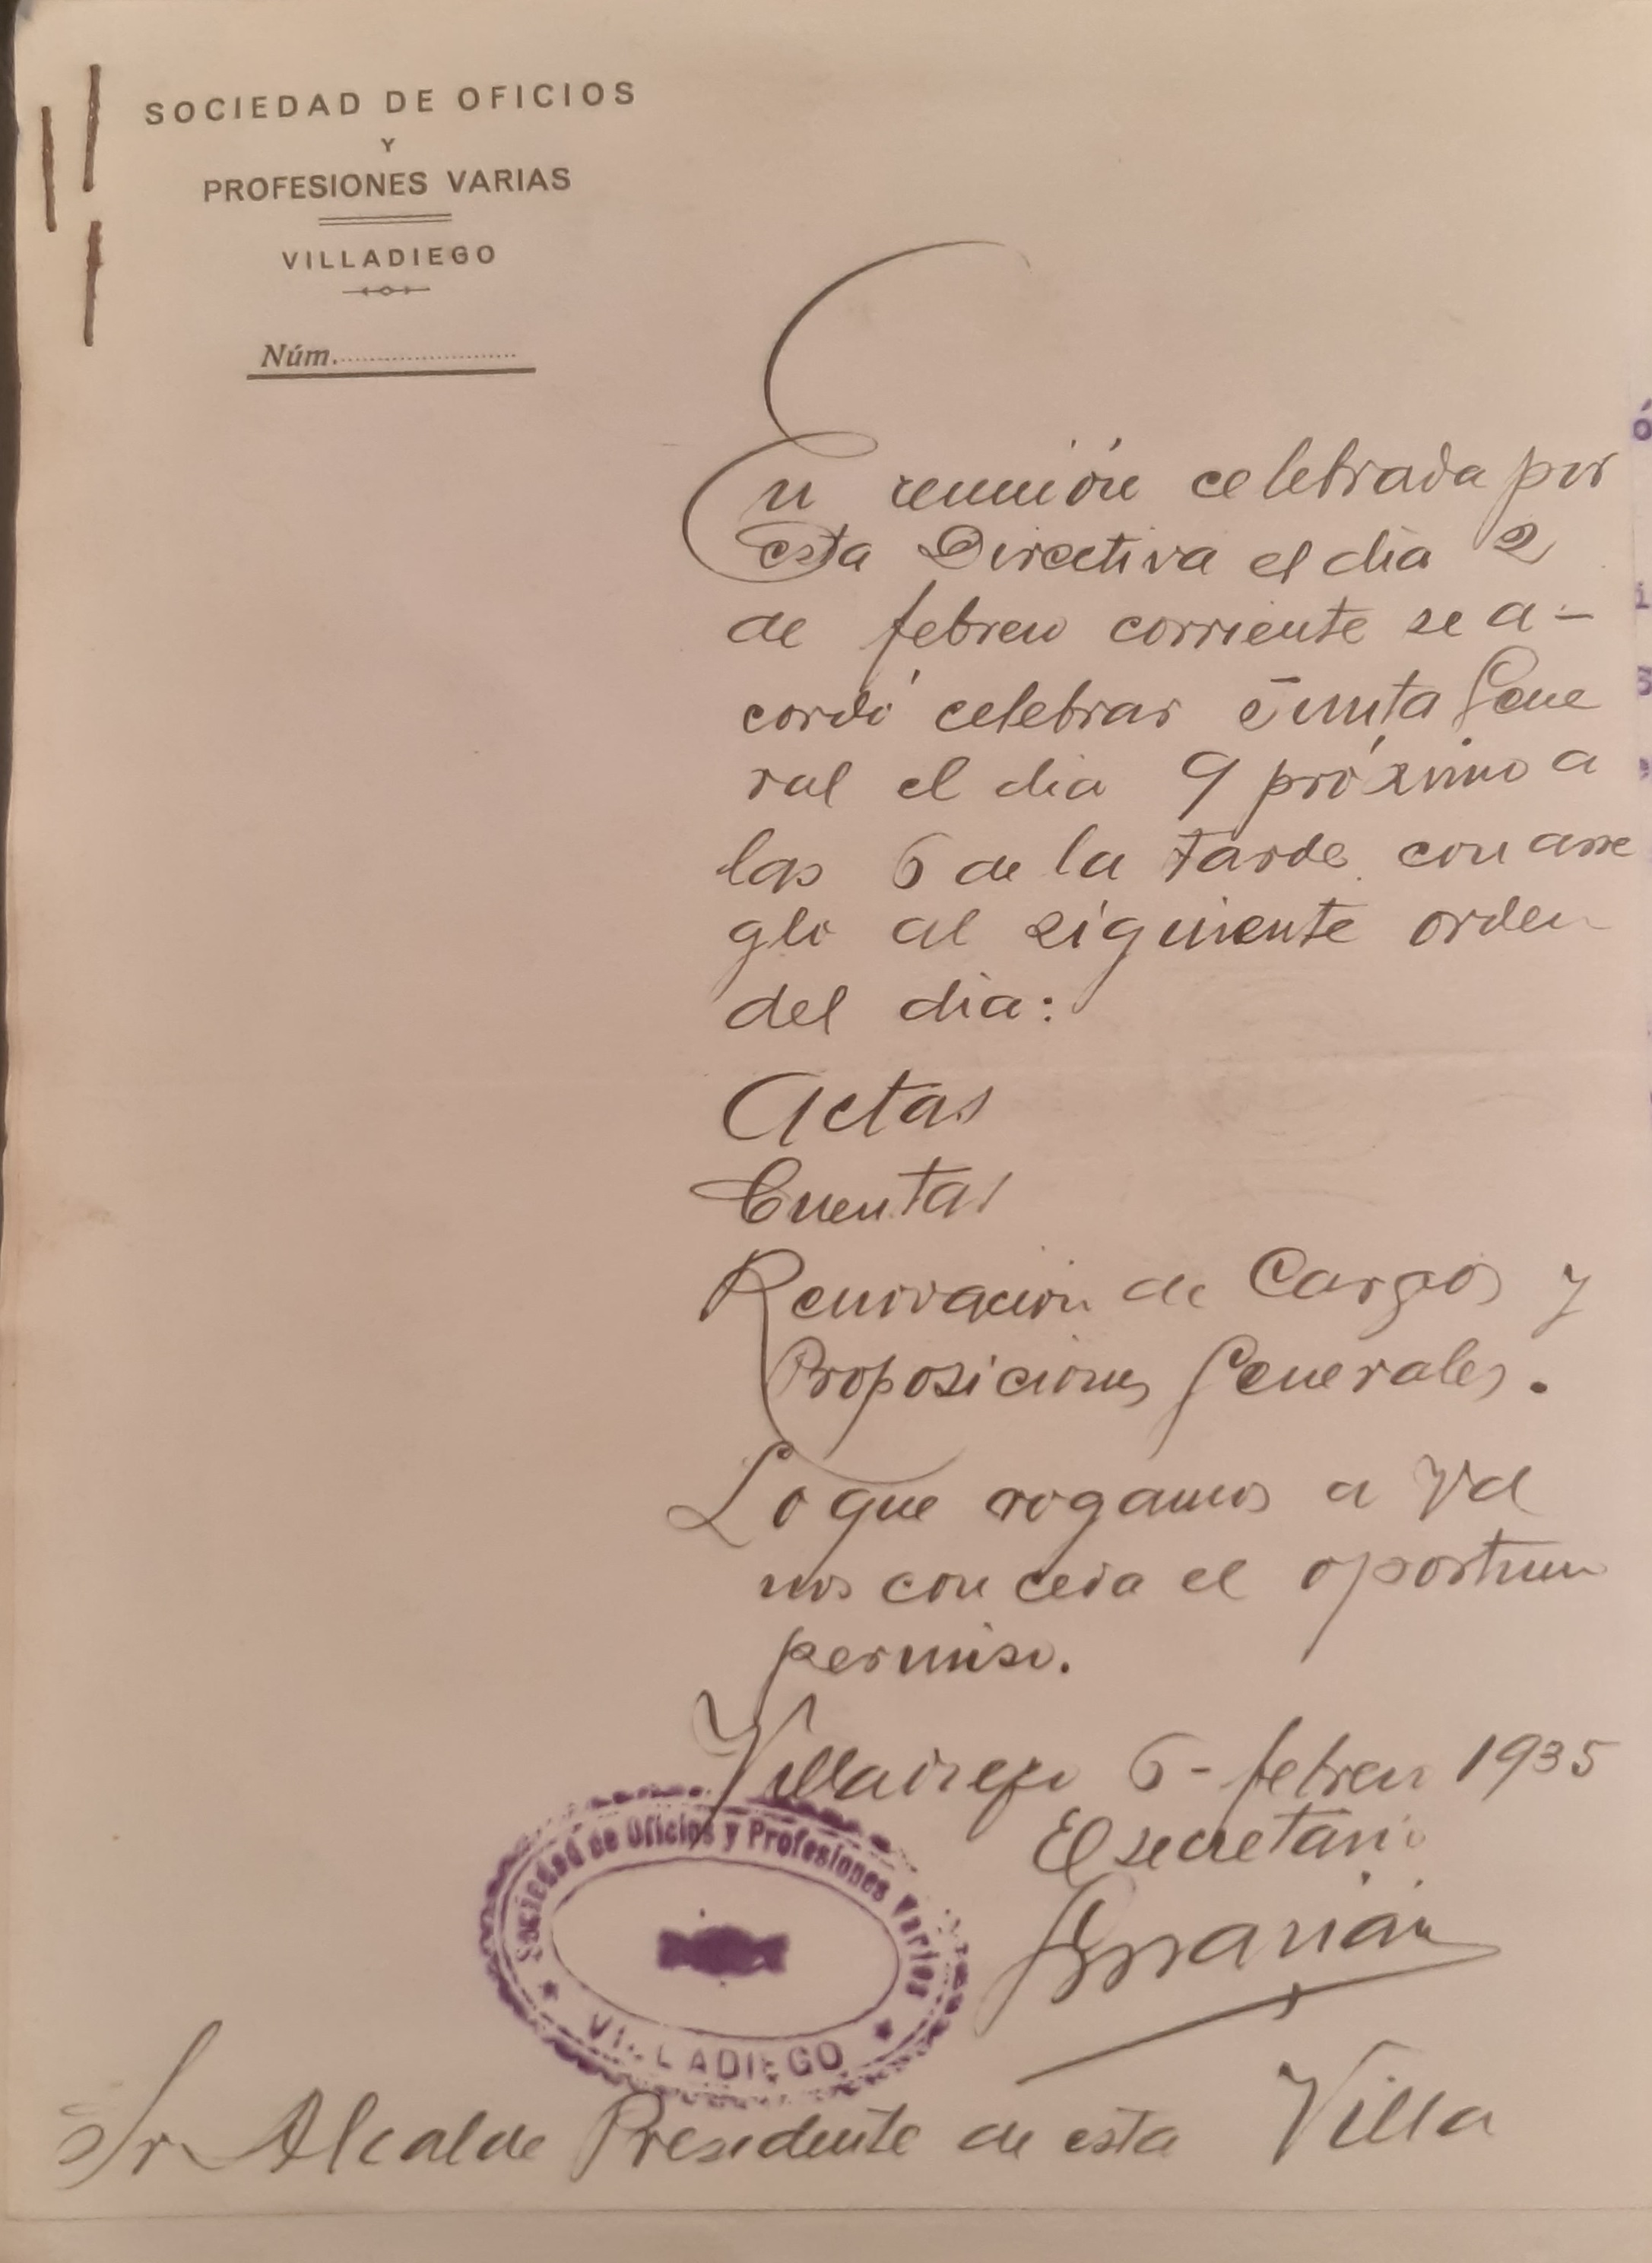 SOCIEDAD DE OFICIOS
Y
PROFESIONES VARIAS
VILLADIEGO
Núm.
En reunión celebrada por
esta Directiva el dia 2
de febrero corriente se a-
cordó celebrar Junta Gene
ral el dia 9 próximo a
las 6 de la tarde con arre
glo al siguiente orden
del dia:
Actas
Cuentas
Renovación de Cargos y
Proposiciones Generales.
Lo que rogamos a Vd
nos conceda el oportuno
permiso.
Villadiego 6 - febrero 1935
El secretario
Sociedad de Oficios y Profesiones Varias
VILLADIEGO
Sr Alcalde Presidente de esta Villa